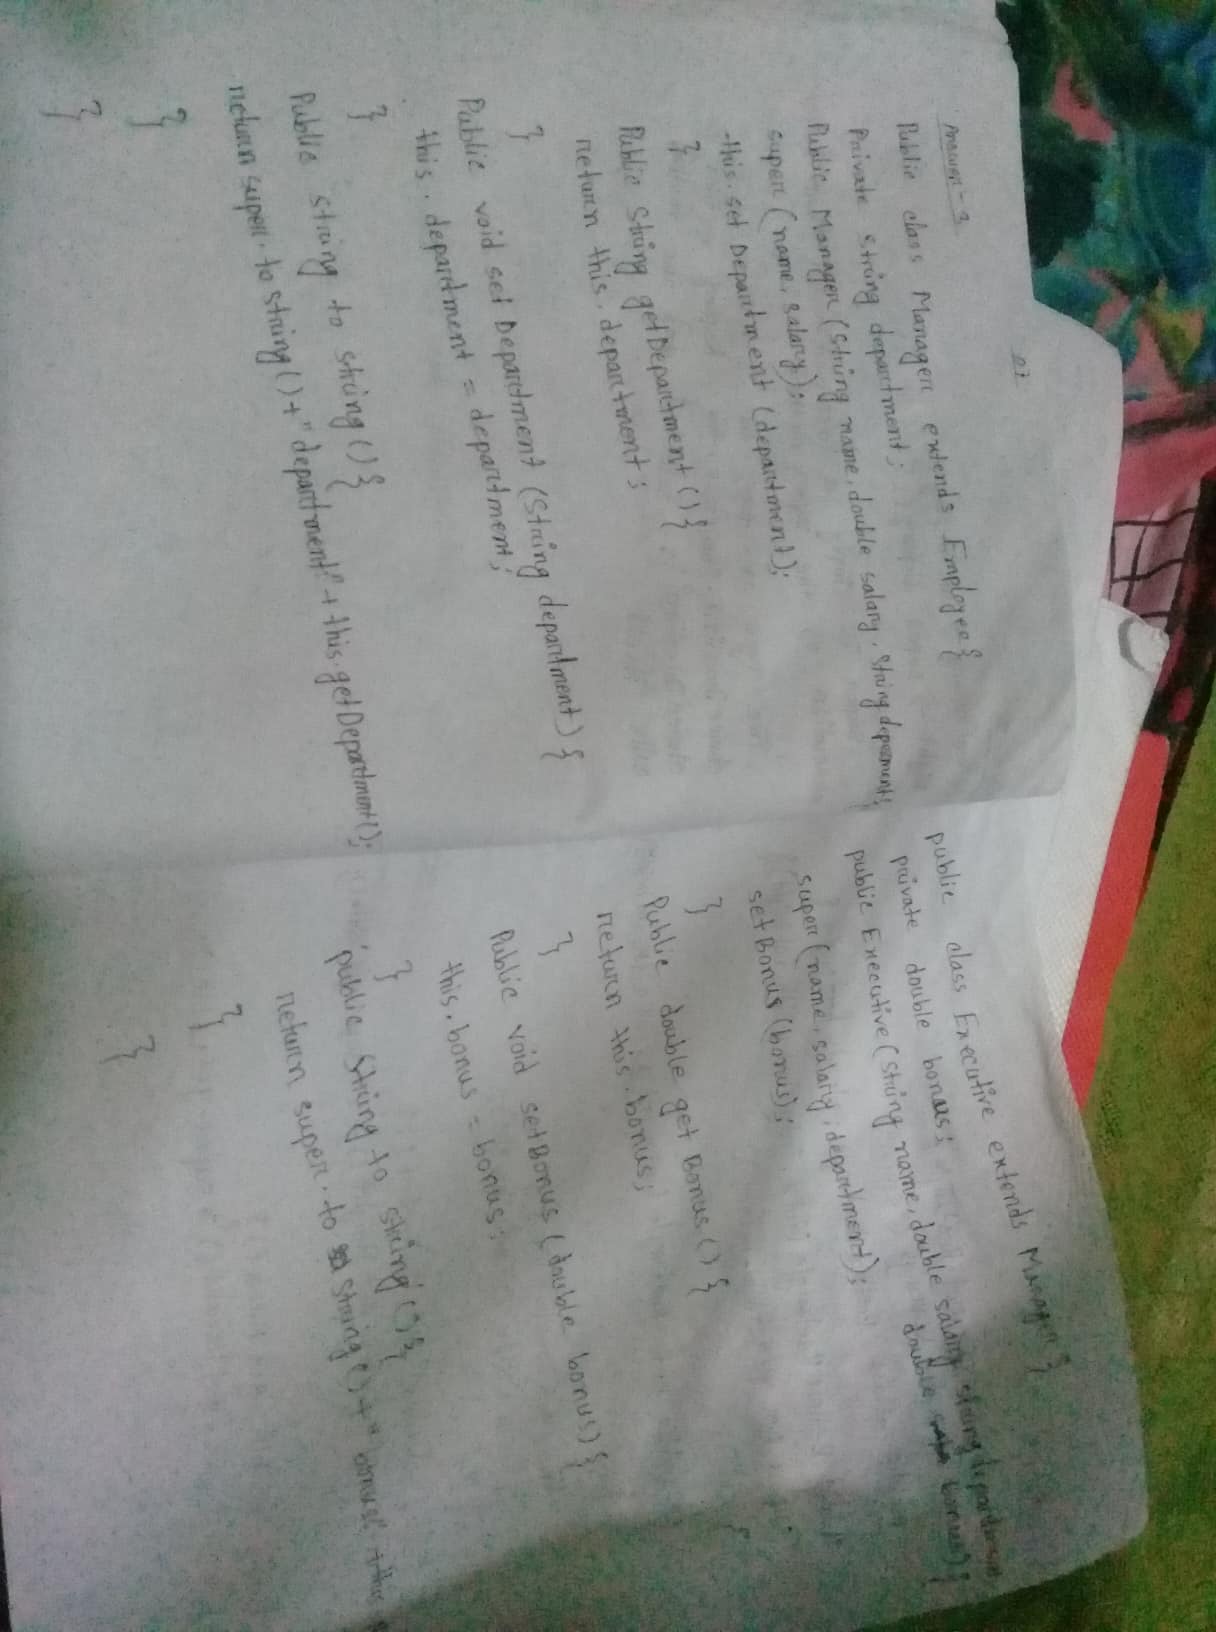 07
Answer - 3
Public class Manager extends Employee {
Private String department;
Public Manager (String name, double salary, String
super (name, salary);
this. set Department (department);
}
Public String getDepartment () {
return this. department;
}
Public void set Department (String department) {
this. department = department;
}
Public string to string () {
return super. to string () + "department:" + this. getDepartment ();
}
}
public class Executive extends Manager {
private double bonus;
public Executive (String name, double salary, string
double bonus) {
super (name, salary, department);
setBonus (bonus);
}
Public double get Bonus () {
return this. bonus;
}
Public void setBonus (double bonus) {
this. bonus = bonus;
}
public String to string () {
return super. to String () + "bonus:" + this
}
}